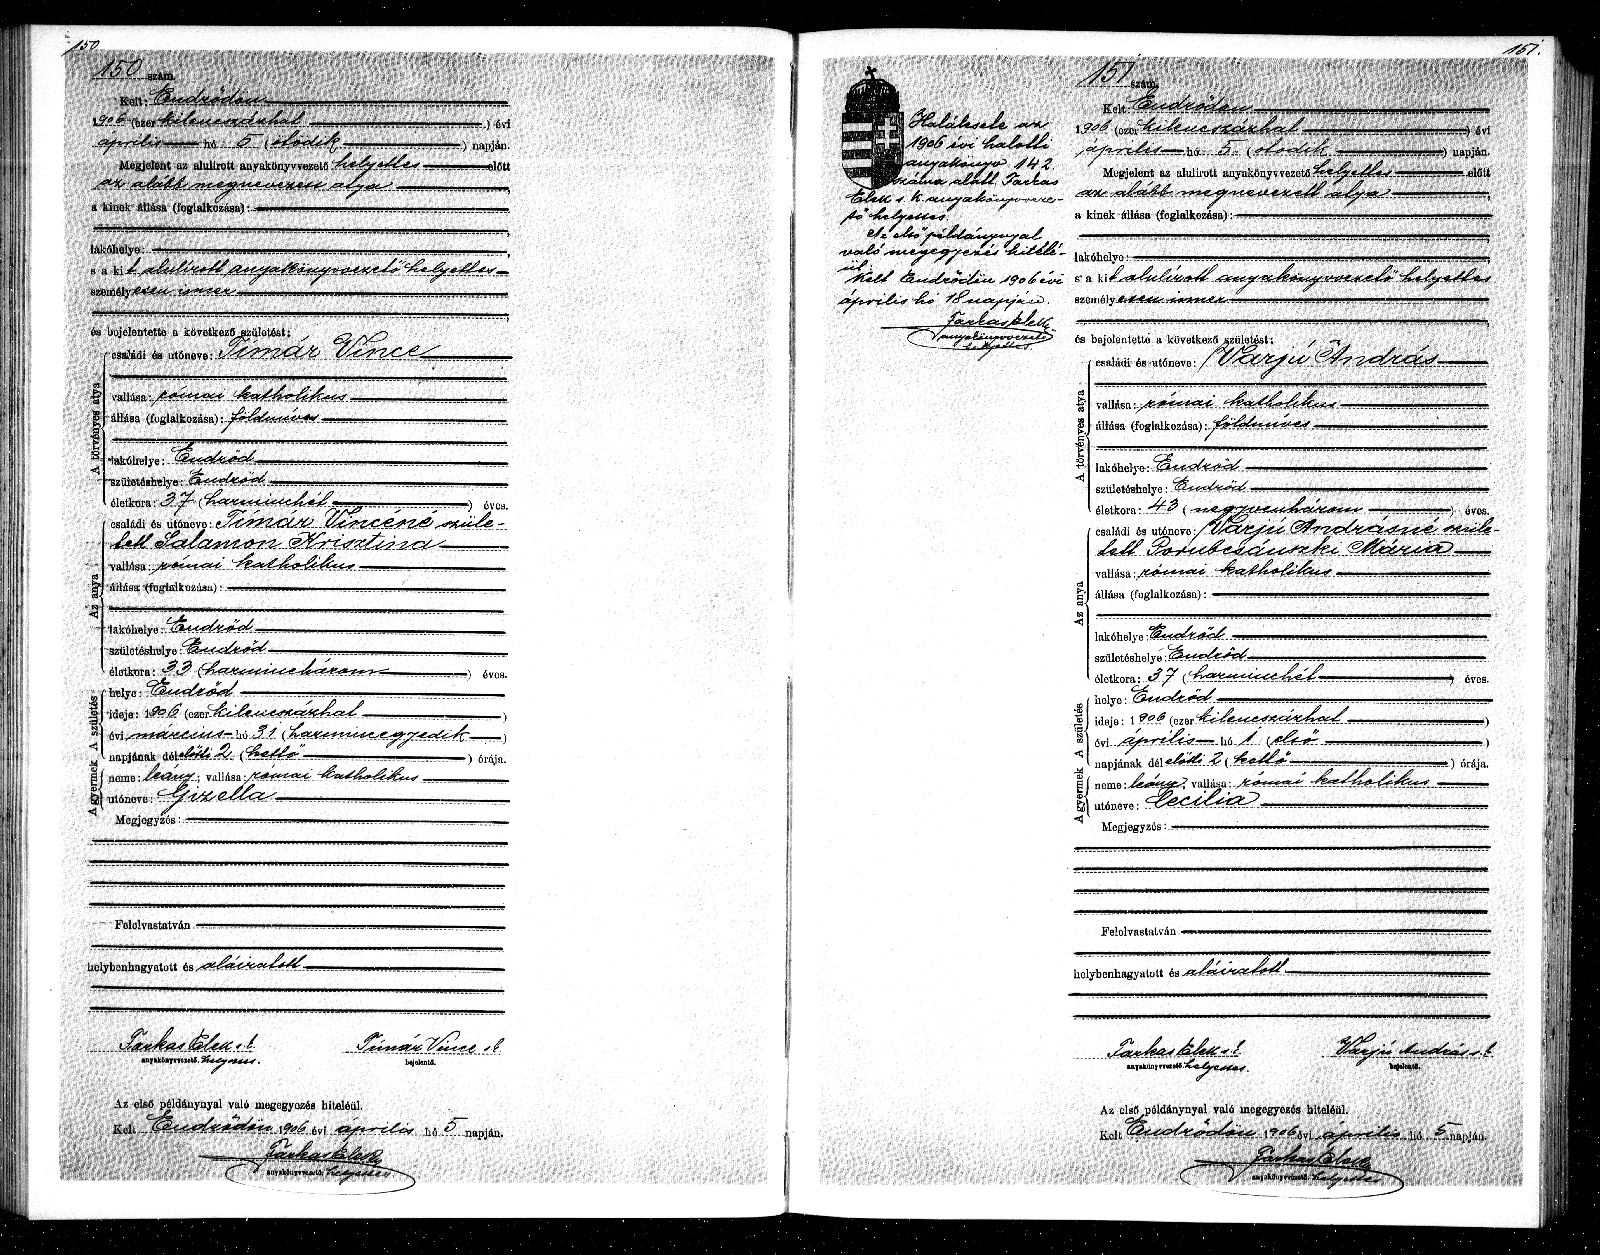 150
150 szám.
Kelt: Endrődön
1906 (ezer kilenczszázhat ) évi
április hó 5 (ötödik ) napján.
Megjelent az alulirott anyakönyvvezető helyettes előtt
az alább megnevezett atya
a kinek állása (foglalkozása):
lakóhelye:
s a kit alulírott anyakönyvvezető helyettes
személyesen ismer
és bejelentette a következő születést:
A törvényes atya
családi és utóneve: Tímár Vince
vallása: római katholikus
állása (foglalkozása): földmíves
lakóhelye: Endrőd
születéshelye: Endrőd
életkora: 37 (harminchét ) éves.
Az anya
családi és utóneve: Tímár Vincéné szüle-
tett Salamon Krisztina
vallása: római katholikus
állása (foglalkozása):
lakóhelye: Endrőd
születéshelye: Endrőd
életkora: 33 (harminchárom ) éves.
A születés
helye: Endrőd
ideje: 1906 (ezer kilenczszázhat )
évi március hó 31 (harminczegyedik )
napjának délelőtti 2 (kettő ) órája.
A gyermek
neme: leány; vallása: római katholikus
utóneve: Gizella
Megjegyzés:
Felolvastatván
helybenhagyatott és aláiratott
Farkas Elek s. k. Tímár Vince s. k.
anyakönyvvezető. helyettes. bejelentő.
Az első példánynyal való megegyezés hiteléül.
Kelt Endrődön 1906 évi április hó 5 napján.
Farkas Elek
anyakönyvvezető helyettes
151.
Halálesete az
1906 évi halotti
anyakönyv 142
száma alatt. Farkas
Elek s. k. anyakönyvveze-
tő helyettes.
Az első példánynyal
való megegyezés hitelé-
ül.
Kelt Endrődön 1906 évi
április hó 18 napján.
Farkas Elek
anyakönyvvezető
helyettes
151 szám.
Kelt: Endrődön
1906 (ezer kilenczszázhat ) évi
április hó 5. (ötödik ) napján.
Megjelent az alulirott anyakönyvvezető helyettes előtt
az alább megnevezett atya
a kinek állása (foglalkozása):
lakóhelye:
s a kit alulírott anyakönyvvezető helyettes
személyesen ismer
és bejelentette a következő születést:
A törvényes atya
családi és utóneve: Varjú András
vallása: római katholikus
állása (foglalkozása): földmíves
lakóhelye: Endrőd
születéshelye: Endrőd
életkora: 43 (negyvenhárom ) éves.
Az anya
családi és utóneve: Varjú Andrásné szüle-
tett Porubcsánszki Mária
vallása: római katholikus
állása (foglalkozása):
lakóhelye: Endrőd
születéshelye: Endrőd
életkora: 37 (harminchét ) éves.
A születés
helye: Endrőd
ideje: 1906 (ezer kilenczszázhat )
évi április hó 1 (első )
napjának délelőtti 2 (kettő ) órája.
A gyermek
neme: leány; vallása: római katholikus
utóneve: Cecilia
Megjegyzés:
Felolvastatván
helybenhagyatott és aláiratott
Farkas Elek s. k. Varjú András s. k.
anyakönyvvezető. helyettes. bejelentő.
Az első példánynyal való megegyezés hiteléül.
Kelt Endrődön 1906 évi április hó 5 napján.
Farkas Elek
anyakönyvvezető helyettes